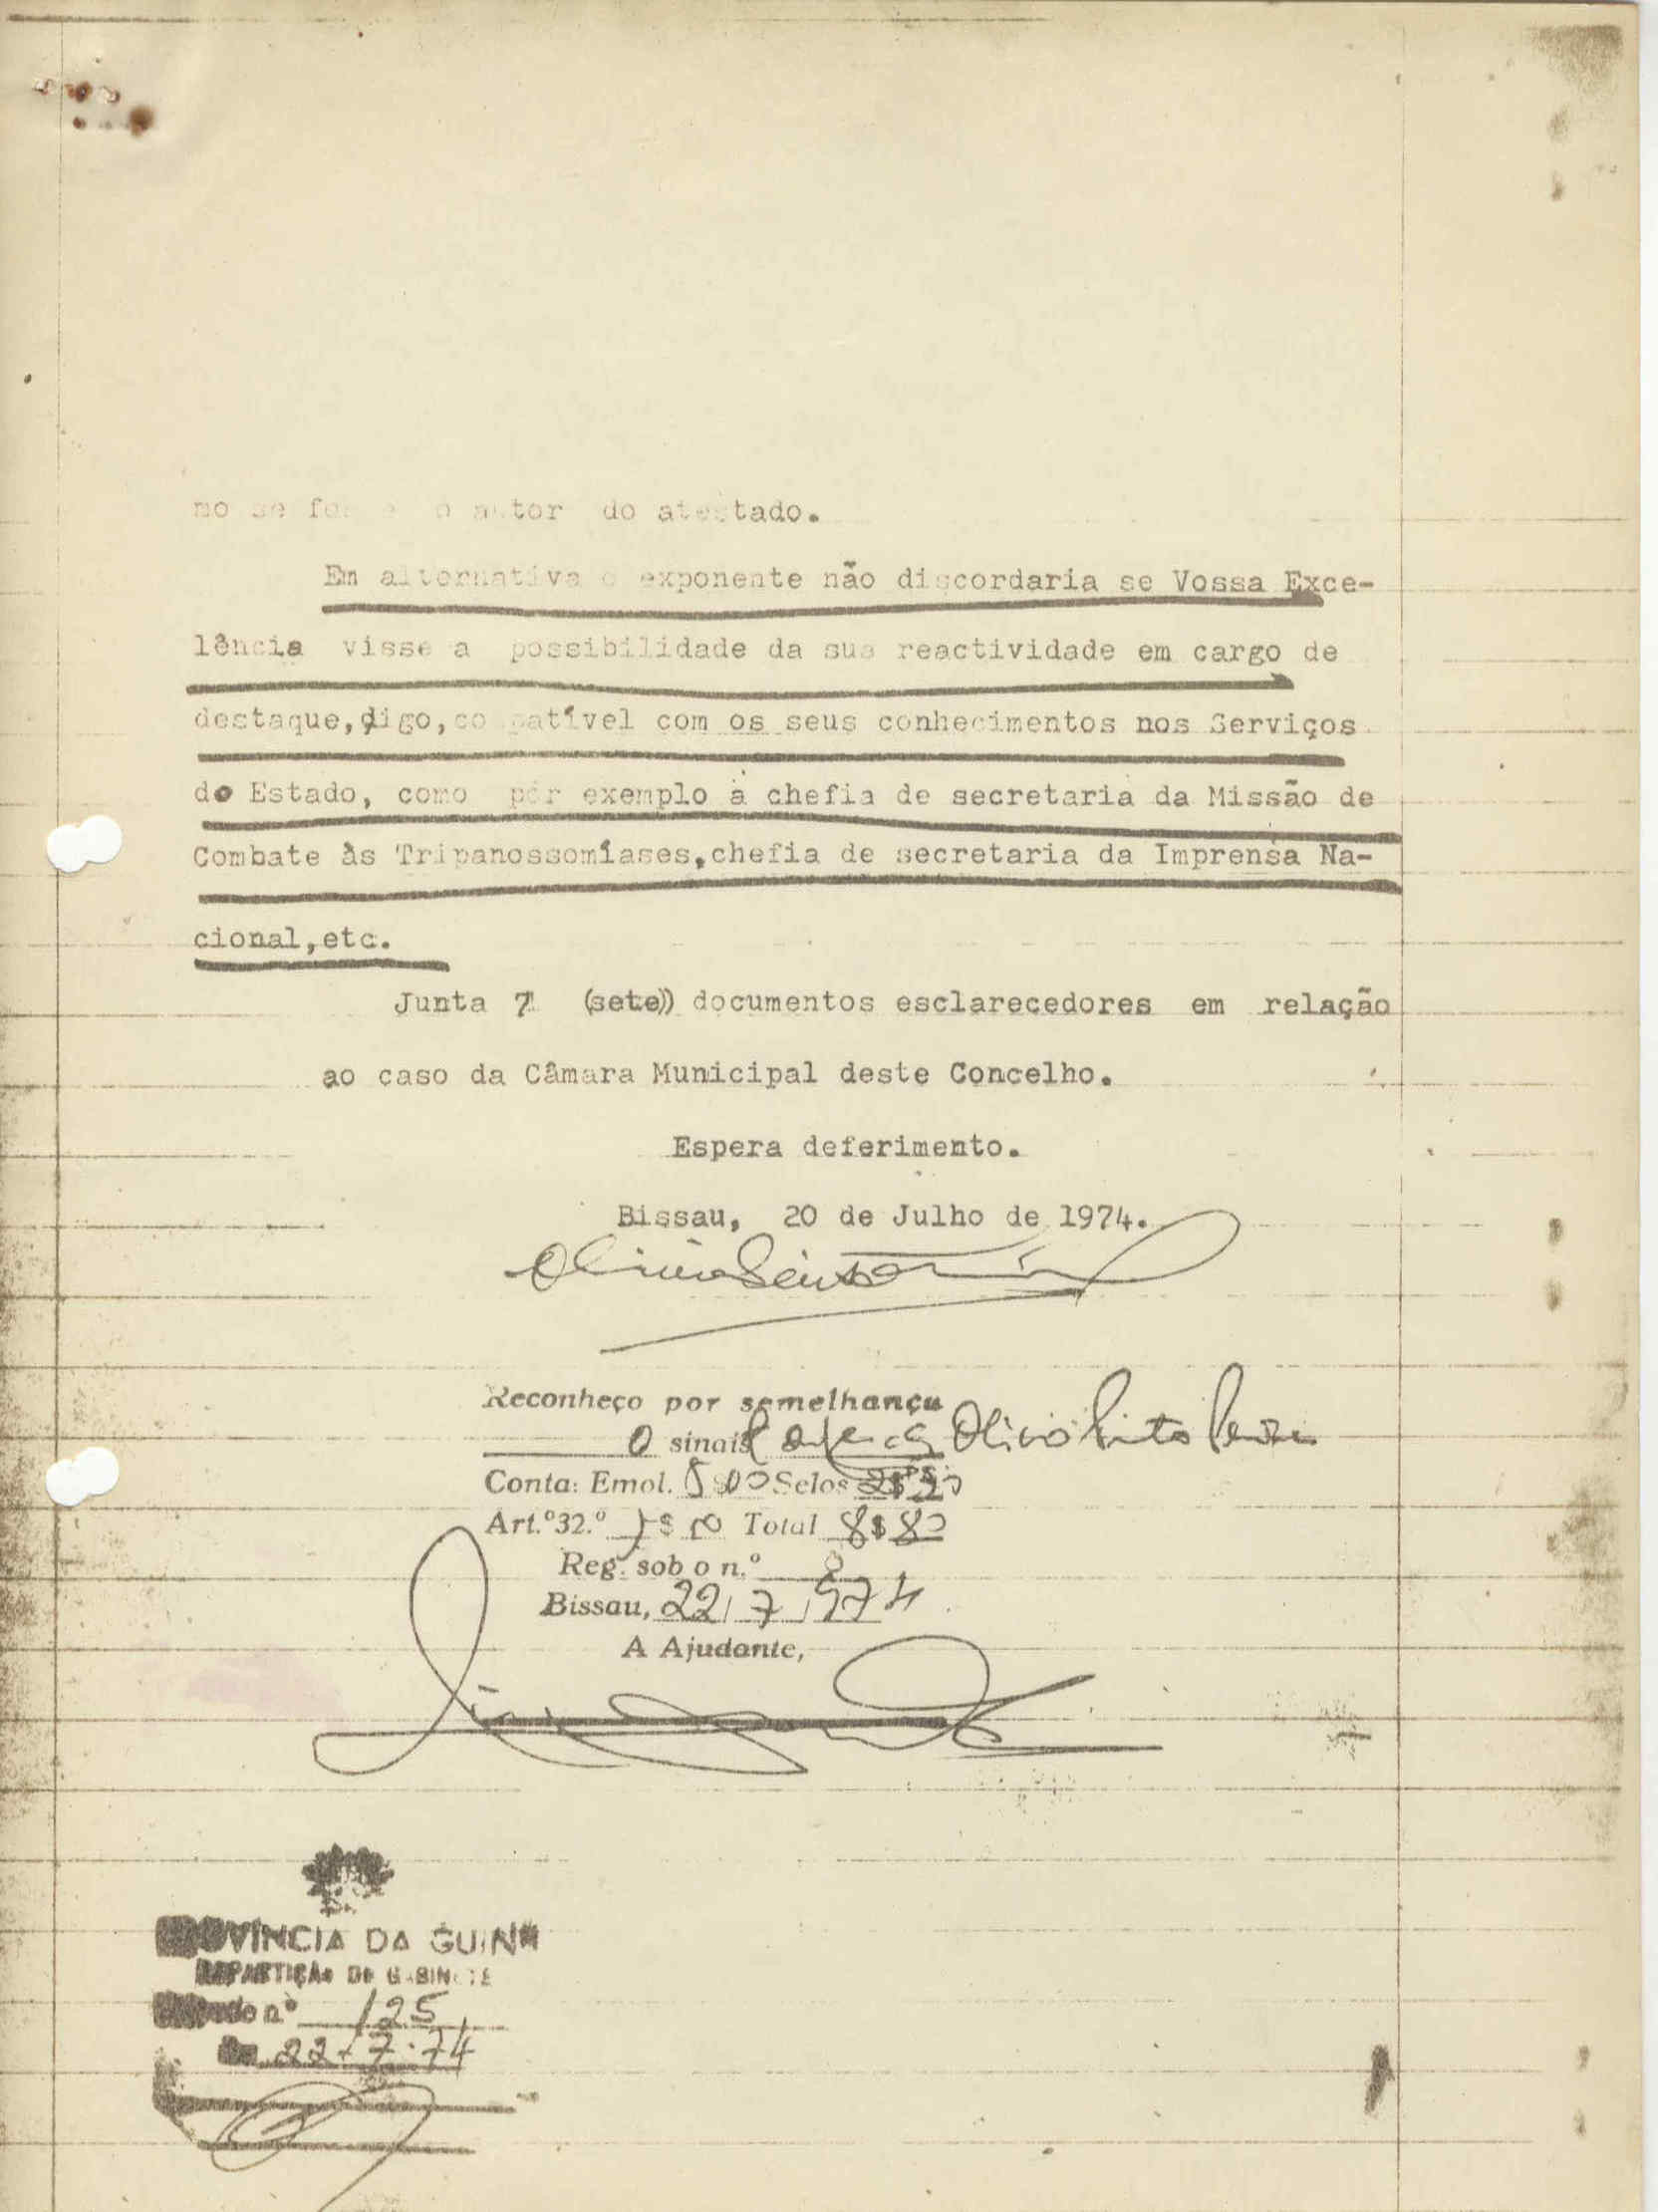 mo se fosse o autor do atestado.
Em alternativa o exponente não discordaria se Vossa Exce-
lência visse a possibilidade da sua reactividade em cargo de
destaque, digo, compatível com os seus conhecimentos nos Serviços
do Estado, como por exemplo a chefia de secretaria da Missão de
Combate às Tripanossomíases, chefia de secretaria da Imprensa Na-
cional, etc.
Junta 7 (sete) documentos esclarecedores em relação
ao caso da Câmara Municipal deste Concelho.
Espera deferimento.
Bissau, 20 de Julho de 1974.
Reconheço por semelhança
o sinais Olivio Pinto
Conta: Emol. 5$00 Selos
Art.º 32.º Total 8$80
Reg. sob o n.º
Bissau, 22/7/974
A Ajudante,
PROVÍNCIA DA GUINÉ
REPARTIÇÃO DO GABINETE
nº 125
22-7-74